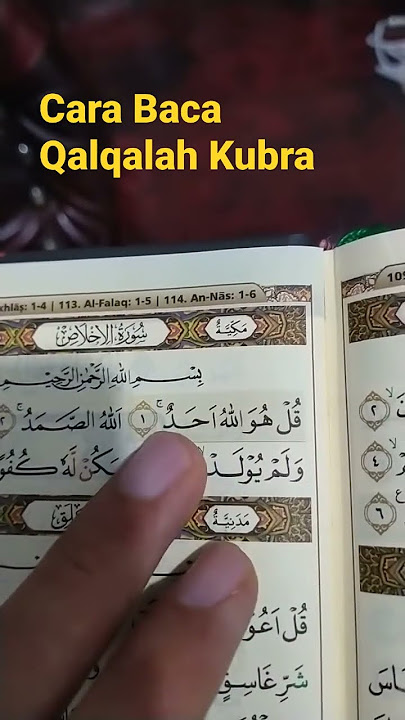 Cara Baca
Qalqalah Kubra
khlāṣ: 1-4 | 113. Al-Falaq: 1-5 | 114. An-Nās: 1-6
109
سُوْرَةُ الْاِخْلَاصِ مَكِّيَّةٌ
بِسْمِ اللّٰهِ الرَّحْمٰنِ الرَّحِيْمِ
قُلْ هُوَ اللّٰهُ اَحَدٌۚ ١ اَللّٰهُ الصَّمَدُۚ ٢
وَلَمْ يُوْلَدْۙ يَكُنْ لَّهٗ كُفُوًا
مَدَنِيَّةٌ
قُلْ اَعُوْ
شَرِّ غَاسِقٍ
٢
٤
٦